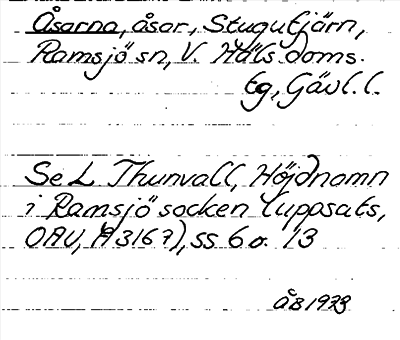 Åsarna, åsar, Stugutjärn,
Ramsjö sn, V. Häls. doms.
tg, Gävl. l.
Se L Thunvall, Höjdnamn
i Ramsjö socken (uppsats,
OAU, A 3167), ss 6 o. 13
ÅB 1973